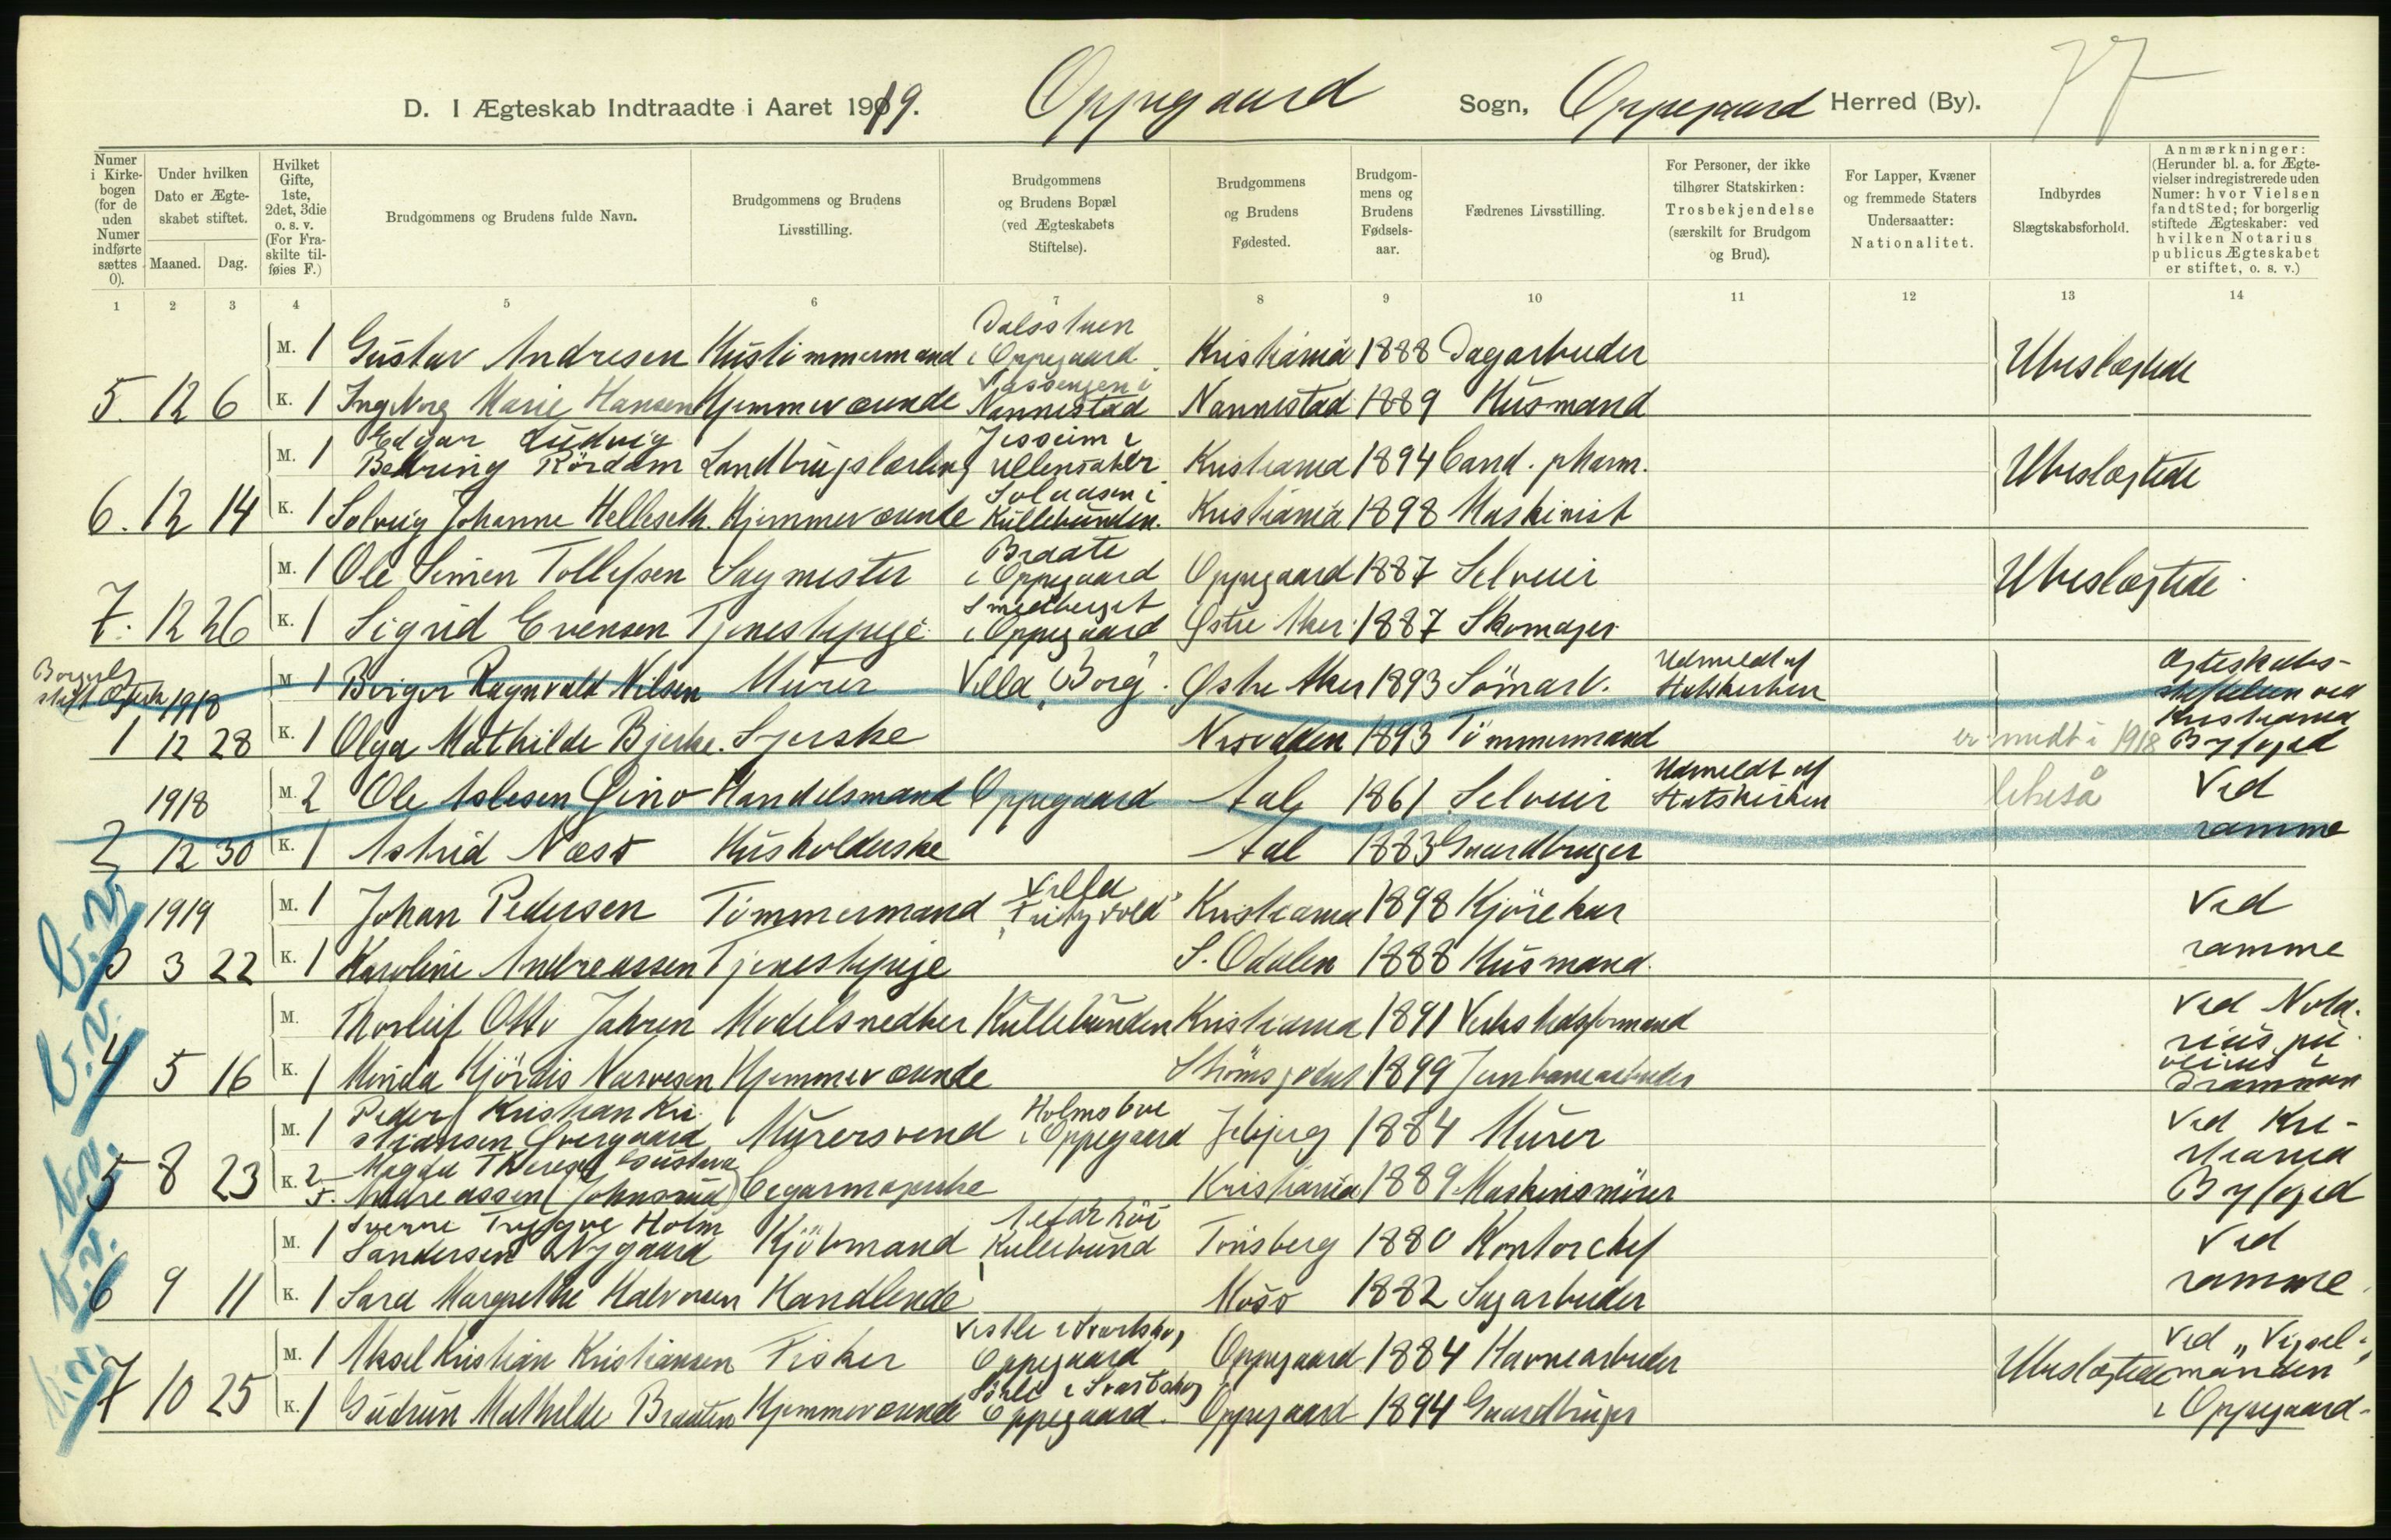 77
D. I Ægteskab Indtraadte i Aaret 1919. Oppegaard Sogn, Oppegaard Herred (By).
Numer i Kirkebogen (for de uden Numer indførte sættes 0).
Under hvilken Dato er Ægteskabet stiftet.
Maaned. Dag.
Hvilket Gifte, 1ste, 2det, 3die o. s. v. (For Fraskilte tilføies F.)
Brudgommens og Brudens fulde Navn.
Brudgommens og Brudens Livsstilling.
Brudgommens og Brudens Bopæl (ved Ægteskabets Stiftelse).
Brudgommens og Brudens Fødested.
Brudgommens og Brudens Fødselsaar.
Fædrenes Livsstilling.
For Personer, der ikke tilhører Statskirken: Trosbekjendelse (særskilt for Brudgom og Brud).
For Lapper, Kvæner og fremmede Staters Undersaatter: Nationalitet.
Indbyrdes Slægtskabsforhold.
Anmærkninger: (Herunder bl. a. for Ægtevielser indregistrerede uden Numer: hvor Vielsen fandt Sted; for borgerlig stiftede Ægteskaber: ved hvilken Notarius publicus Ægteskabet er stiftet, o. s. v.)
1 2 3 4 5 6 7 8 9 10 11 12 13 14
M. 1 Gustav Andresen Hustømmermand i Oppegaard Kristiania 1888 Dagarbeider Ubeslægtede
5. 12 6 K. 1 Ingeborg Marie Hansen Hjemmeværende Nannestad Nannestad 1889 Husmand
M. 1 Edgar Ludvig Behring Rördam Landbrugslærling Jesseim i Ullensaker Kristiania 1894 Cand. pharm. Ubeslægtede
6. 12 14 K. 1 Solveig Johanne Helleseth. Hjemmeværende Kullebunden. Kristiania 1898 Maskinist
M. 1 Ole Simen Tollefsen Sagmester Braate i Oppegaard Oppegaard 1887 Selveier Ubeslægtede
7. 12 26 K. 1 Sigrid Evensen Tjenestepige Smedberget i Oppegaard Østre Aker 1887 Skomager
Borgerlig stift. Ægtesk. 1918 M 1 Birger Ragnvald Nilsen Murer Villa "Borg". Østre Aker 1893 Sömand. Udmeldt af Statskirken Ægteskabsstiftelsen ved
1 12 28 K. 1 Olga Mathilde Bjerke. Syerske Nesodden 1893 Tömmermand er medt i 1918 Kristiania Byfoged
1918 M. 2 Ole Aslesen Öino Handelsmand Oppegaard Aal 1861 Selveier Udmeldt af Statskirken likeså Ved
2 12 30 K. 1 Astrid Næss Husholderske Aal 1883 Gaardbruger samme
b.v. 1919 M. 1 Johan Pedersen Tömmermand Villa "Fritzvold" Kristiania 1898 Kjörekar Ved
3 3 22 K. 1 Karoline Andreassen Tjenestepige S. Odalen 1888 Husmand. samme
b.v. M. Thorleif Otto Jahren Modelsnedker Kullebunden Kristiania 1891 Verkstedsformand Ved Nota-
4 5 16 K. 1 Minda Hjördis Narvesen Hjemmeværende Strömsgodset 1899 Jernbanearbeider rius pu blicus i Drammen
b.v. M. 1 Peder Kristian Kristiansen Overgaard Murersvend i Oppegaard Jebjerg 1884 Murer Ved Kri-
5 8 23 K. 2 F. Magda Therese Gustava Andreassen (Johnsrud) Cigarmagerske Kristiania 1889 Maskinsmörer stiania Byfoged
b.v. M. 1 Sverre Tryggve Holm Sandersen Nygaard Kjöbmand Kullebund Tönsberg 1880 Kontorchef Ved
6 9 11 K. 1 Sara Margrethe Halvorsen Handlende Moss 1882 Sagarbeider samme
b.v. M. 1 Aksel Kristian Kristiansen Fisker Vestli i Svartskog Oppegaard Oppegaard 1884 Havnearbeider Ubeslægtede Ved "Vigsel-
7 10 25 K. 1 Gudrun Mathilde Braaten Hjemmeværende i Svartskog Oppegaard. Oppegaard 1894 Gaardbruger manden" i Oppegaard